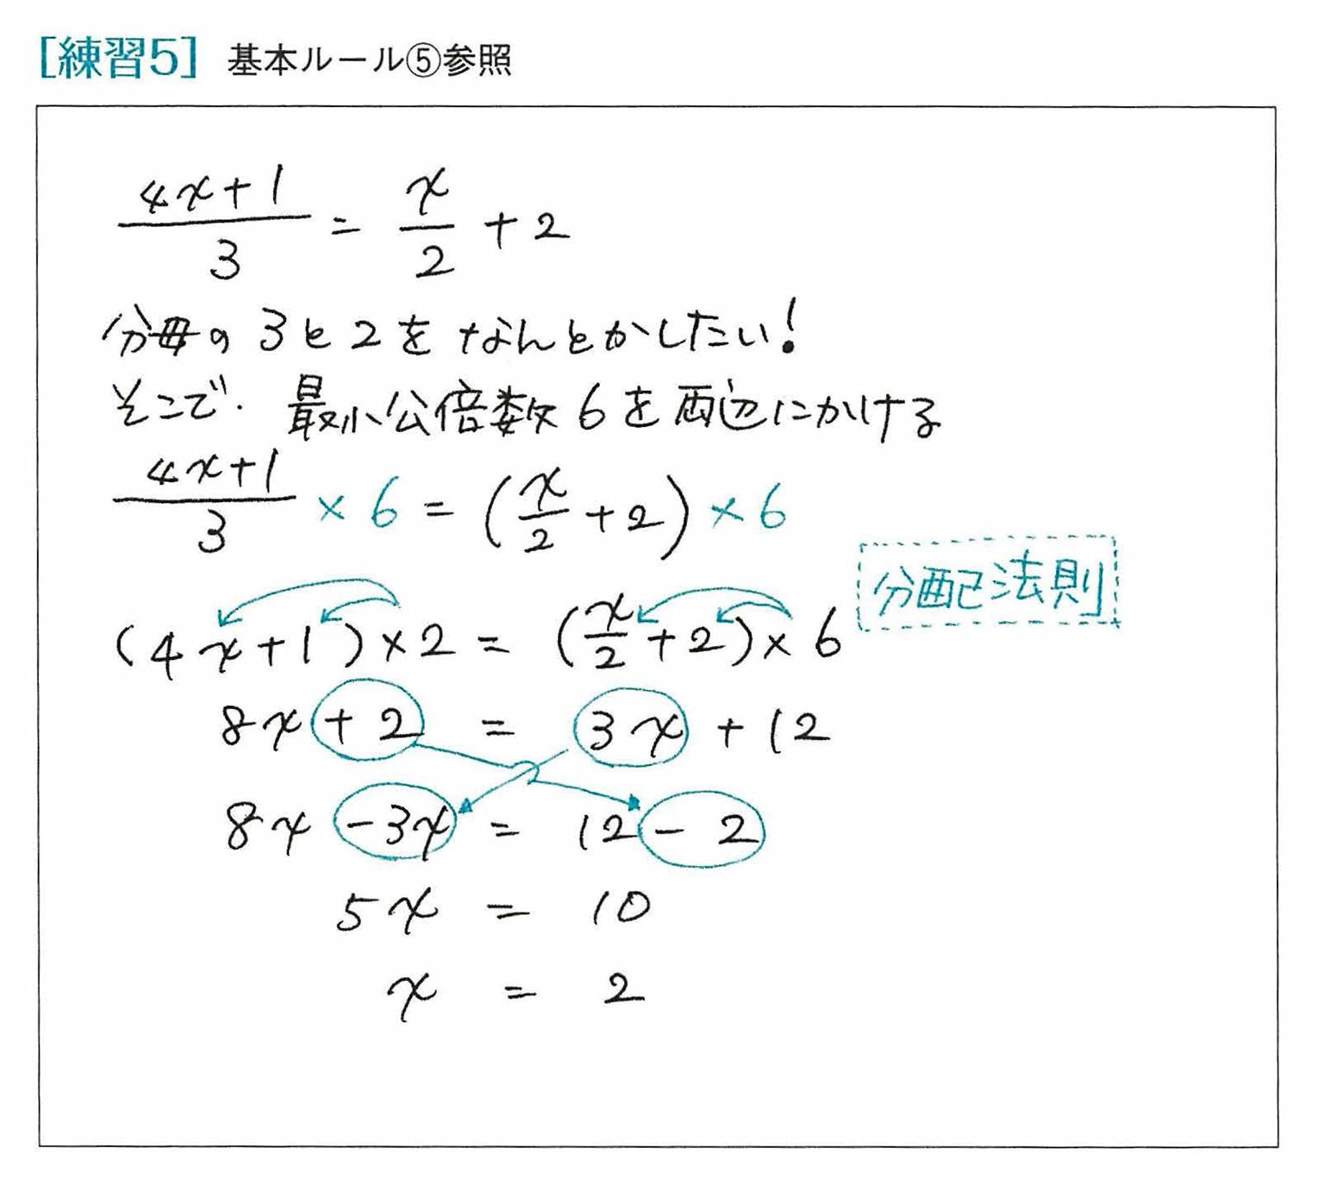 [練習5] 基本ルール⑤参照
(4x+1)/3 = x/2 + 2
分母の3と2をなんとかしたい!
そこで、最小公倍数6を両辺にかける
(4x+1)/3 × 6 = (x/2 + 2) × 6
分配法則
(4x+1)×2 = (x/2+2)×6
8x+2 = 3x+12
8x-3x = 12-2
5x = 10
x = 2